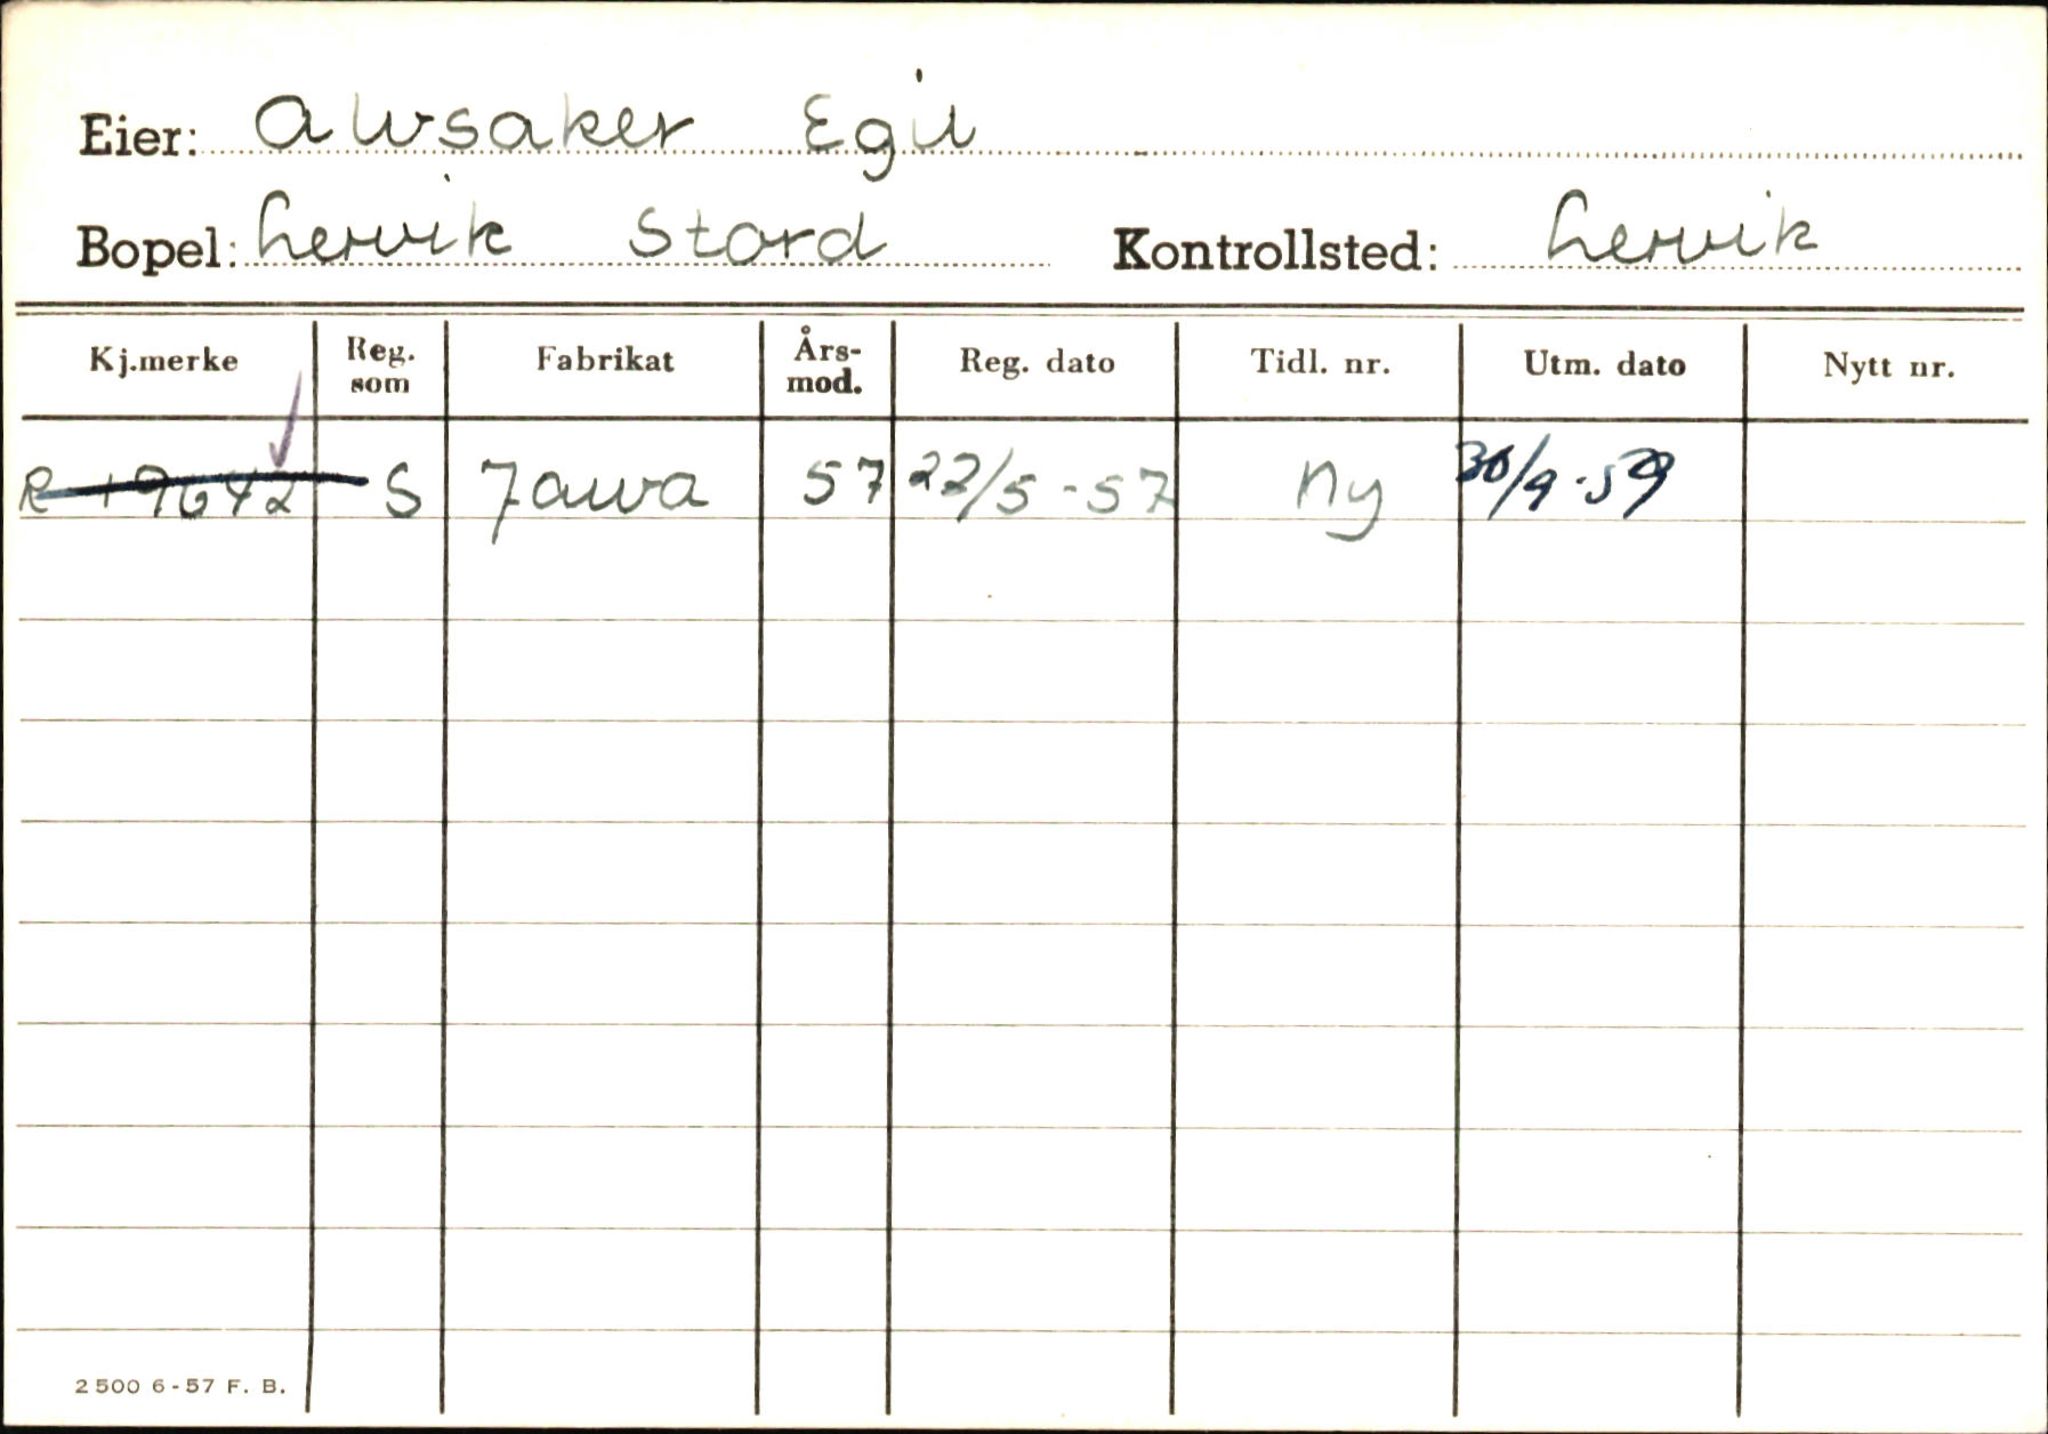 Eier: Alvsaker Egil
Bopel: Lervik Stord Kontrollsted: Lervik
Kj.merke Reg. som Fabrikat Års-mod. Reg. dato Tidl. nr. Utm. dato Nytt nr.
R-19642 S Jawa 57 22/5-57 Ny 30/9-59
2500 6-57 F. B.